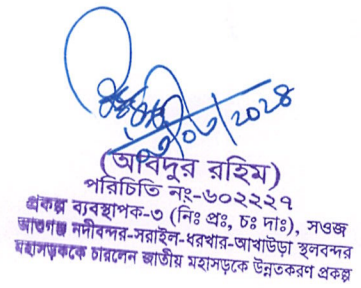 ২০২৪
(আবিদুর রহিম)
পরিচিতি নং-৬০২২২৭
প্রকল্প ব্যবস্থাপক-৩ (নিঃ প্রঃ, চঃ দাঃ), সওজ
আশুগঞ্জ নদীবন্দর-সরাইল-ধরখার-আখাউড়া স্থলবন্দর
মহাসড়ককে চারলেন জাতীয় মহাসড়কে উন্নতকরণ প্রকল্প